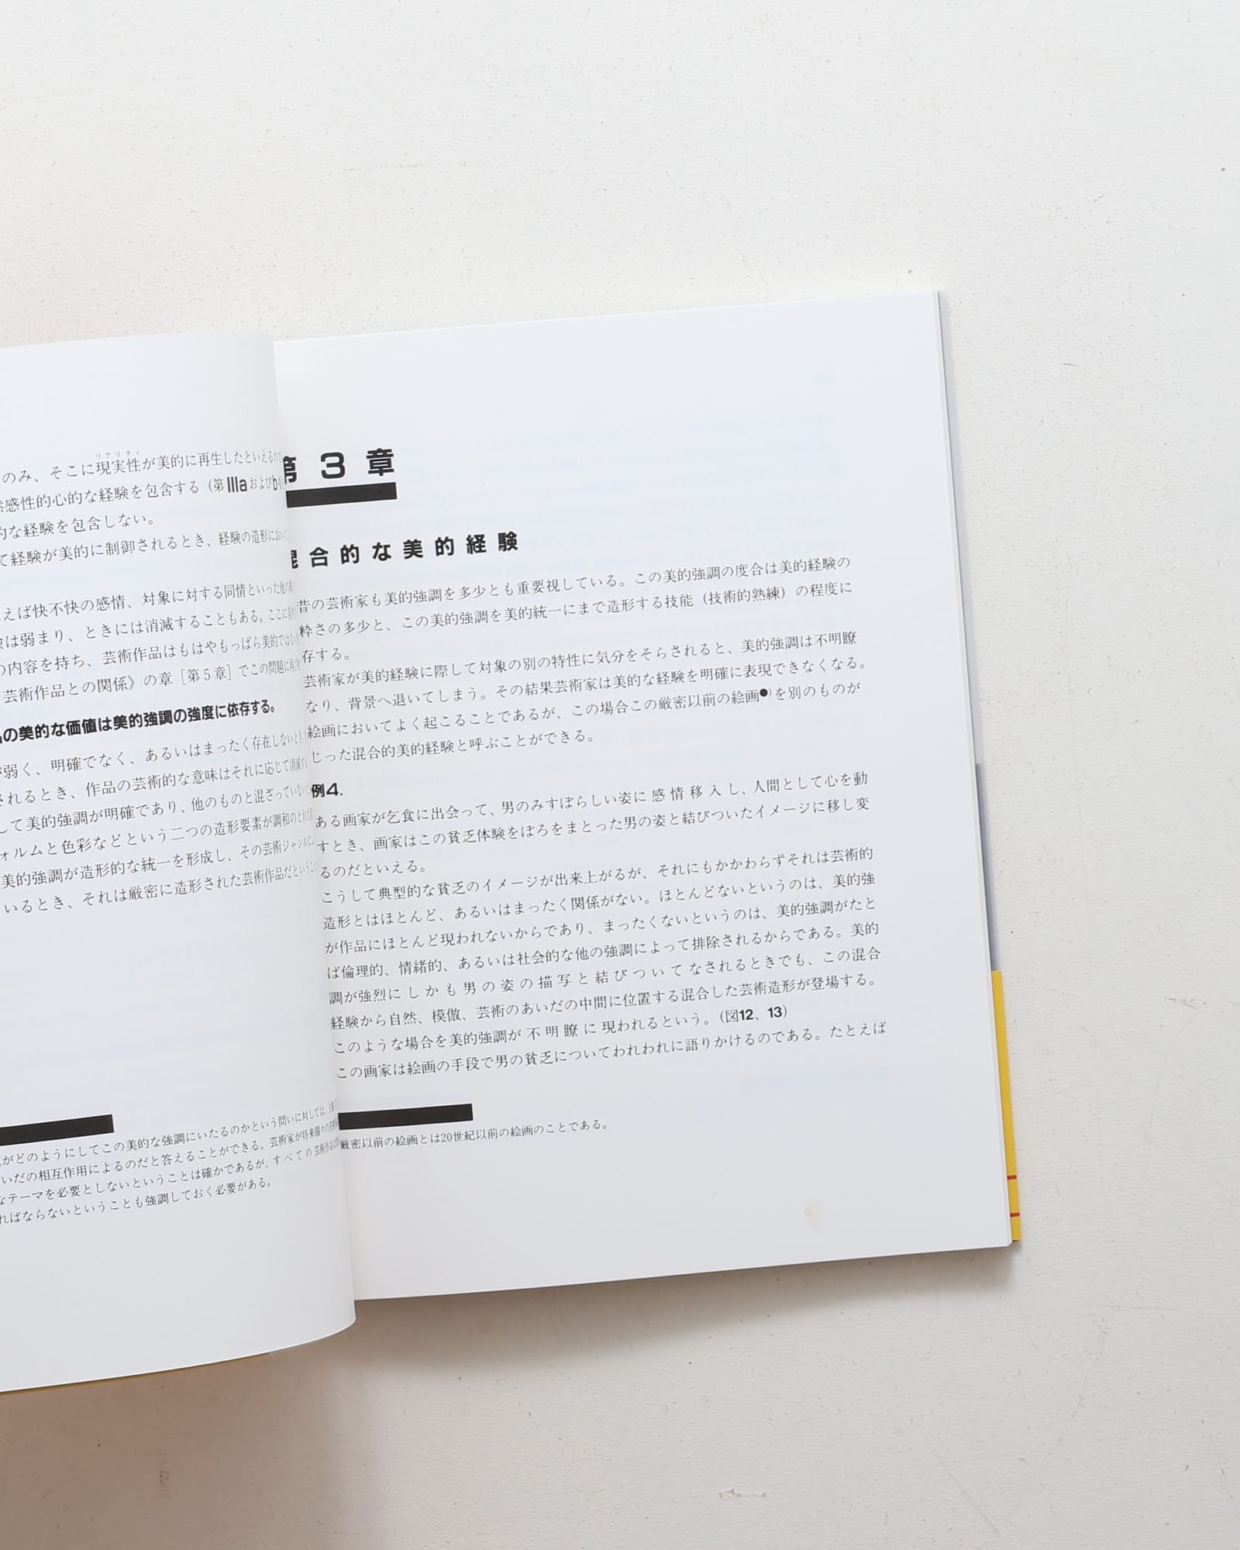 リアリティ
のみ、そこに現実性が美的に再生したといえるの
感性的心的な経験を包含する(第IIIaおよびb
的な経験を包含しない。
て経験が美的に制御されるとき、経験の造形におい
えば快不快の感情、対象に対する同情といった他の
は弱まり、ときには消滅することもある。ここに
の内容を持ち、芸術作品はもはやもっぱら美的では
芸術作品との関係》の章[第5章]でこの問題に
の美的な価値は美的強調の強度に依存する。
が弱く、明確でなく、あるいはまったく存在しないと
されるとき、作品の芸術的な意味はそれに応じて消滅
して美的強調が明確であり、他のものと混ざっていない
ォルムと色彩などという二つの造形要素が調和のとれた
美的強調が造形的な統一を形成し、その芸術ジャンル
いるとき、それは厳密に造形された芸術作品だという
がどのようにしてこの美的な強調にいたるのかという問いに対しては、
いだの相互作用によるのだと答えることができる。芸術家が将来
なテーマを必要としないということは確かであるが、すべての芸術作品
ればならないということも強調しておく必要がある。
第3章
混合的な美的経験
昔の芸術家も美的強調を多少とも重要視している。この美的強調の度合は美的経験の
粋さの多少と、この美的強調を美的統一にまで造形する技能(技術的熟練)の程度に
存する。
芸術家が美的経験に際して対象の別の特性に気分をそらされると、美的強調は不明瞭
なり、背景へ退いてしまう。その結果芸術家は美的な経験を明確に表現できなくなる。
絵画においてよく起こることであるが、この場合この厳密以前の絵画●)を別のものが
じった混合的美的経験と呼ぶことができる。
例4.
ある画家が乞食に出会って、男のみすぼらしい姿に感情移入し、人間として心を動
すとき、画家はこの貧乏体験をぼろをまとった男の姿と結びついたイメージに移し変
るのだといえる。
こうして典型的な貧乏のイメージが出来上がるが、それにもかかわらずそれは芸術的
造形とはほとんど、あるいはまったく関係がない。ほとんどないというのは、美的強
が作品にほとんど現われないからであり、まったくないというのは、美的強調がたと
ば倫理的、情緒的、あるいは社会的な他の強調によって排除されるからである。美的
調が強烈にしかも男の姿の描写と結びついてなされるときでも、この混合
経験から自然、模倣、芸術のあいだの中間に位置する混合した芸術造形が登場する。
このような場合を美的強調が不明瞭に現われるという。(図12、13)
この画家は絵画の手段で男の貧乏についてわれわれに語りかけるのである。たとえば
厳密以前の絵画とは20世紀以前の絵画のことである。